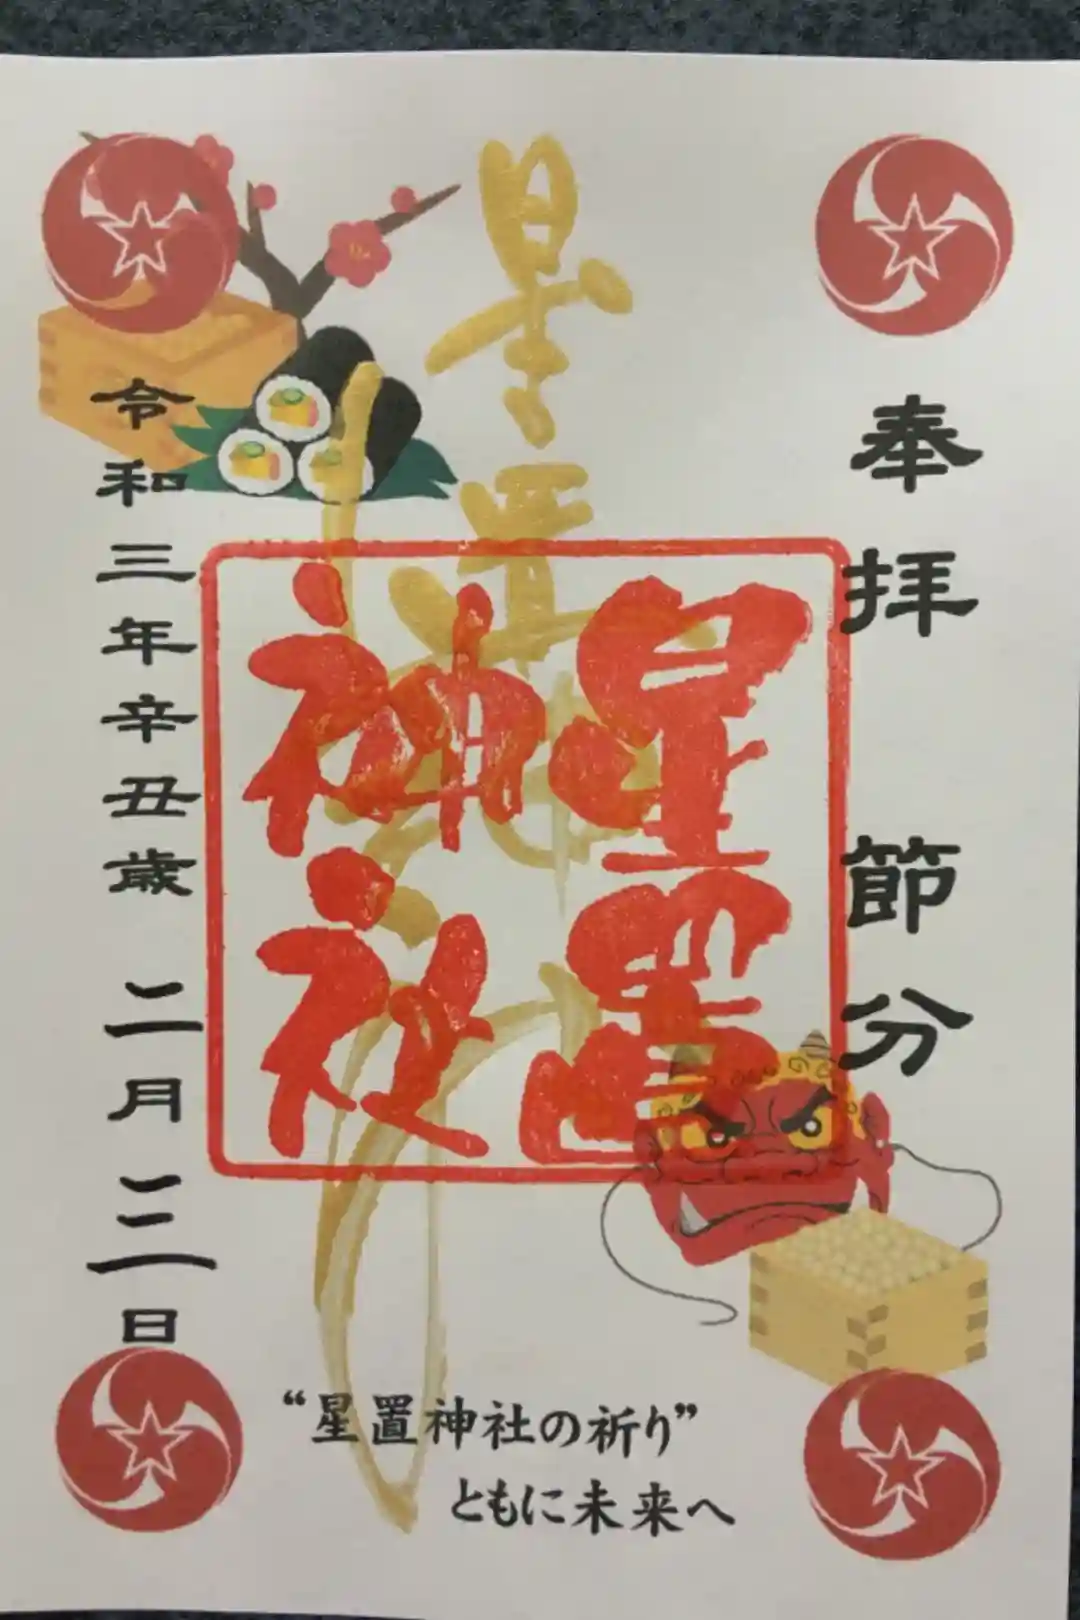 奉拝 節分
星置神社
星置
神社
令和三年辛丑歳 二月二日
“星置神社の祈り”
ともに未来へ